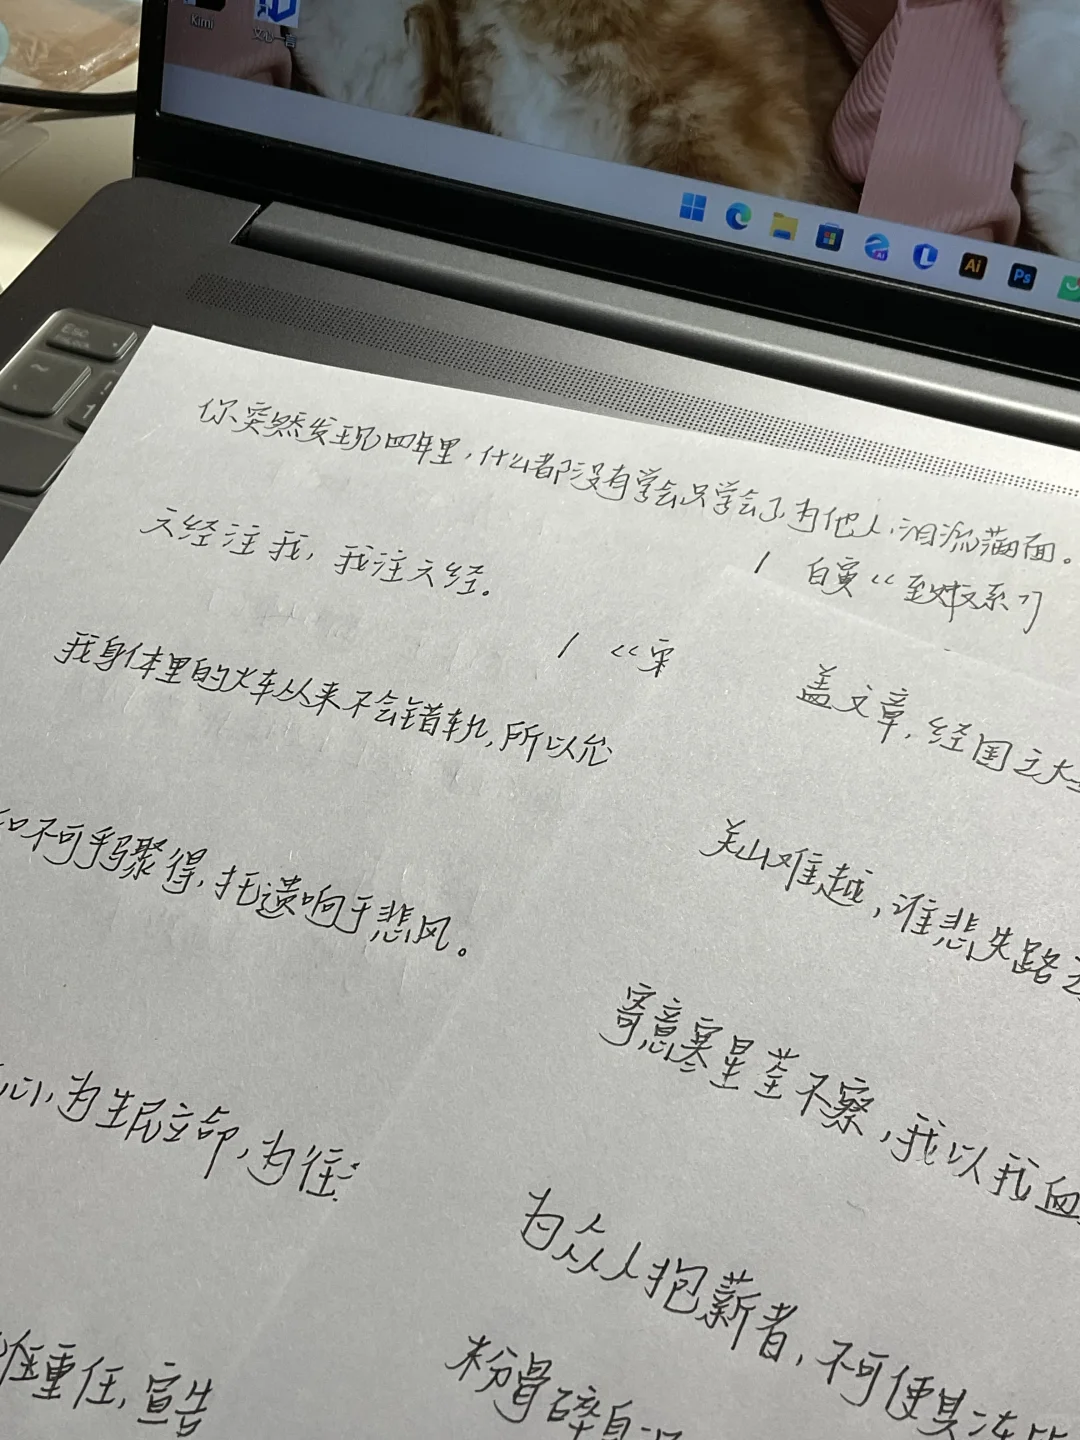 Kimi
文心一言
Ai
Ps
Esc
你突然发现四年里，什么都没有学会只学会了为他人泪流满面。
/ 白寅《致校系
六经注我，我注六经。
/ 《宋
我身体里的火车从来不会错轨，所以允
盖文章，经国之大
知不可乎骤得，托遗响于悲风。
关山难越，谁悲失路之
寄意寒星荃不察，我以我血
心，为生民立命，为往
为众人抱薪者，不可使其冻
重任，宣告
粉骨碎身